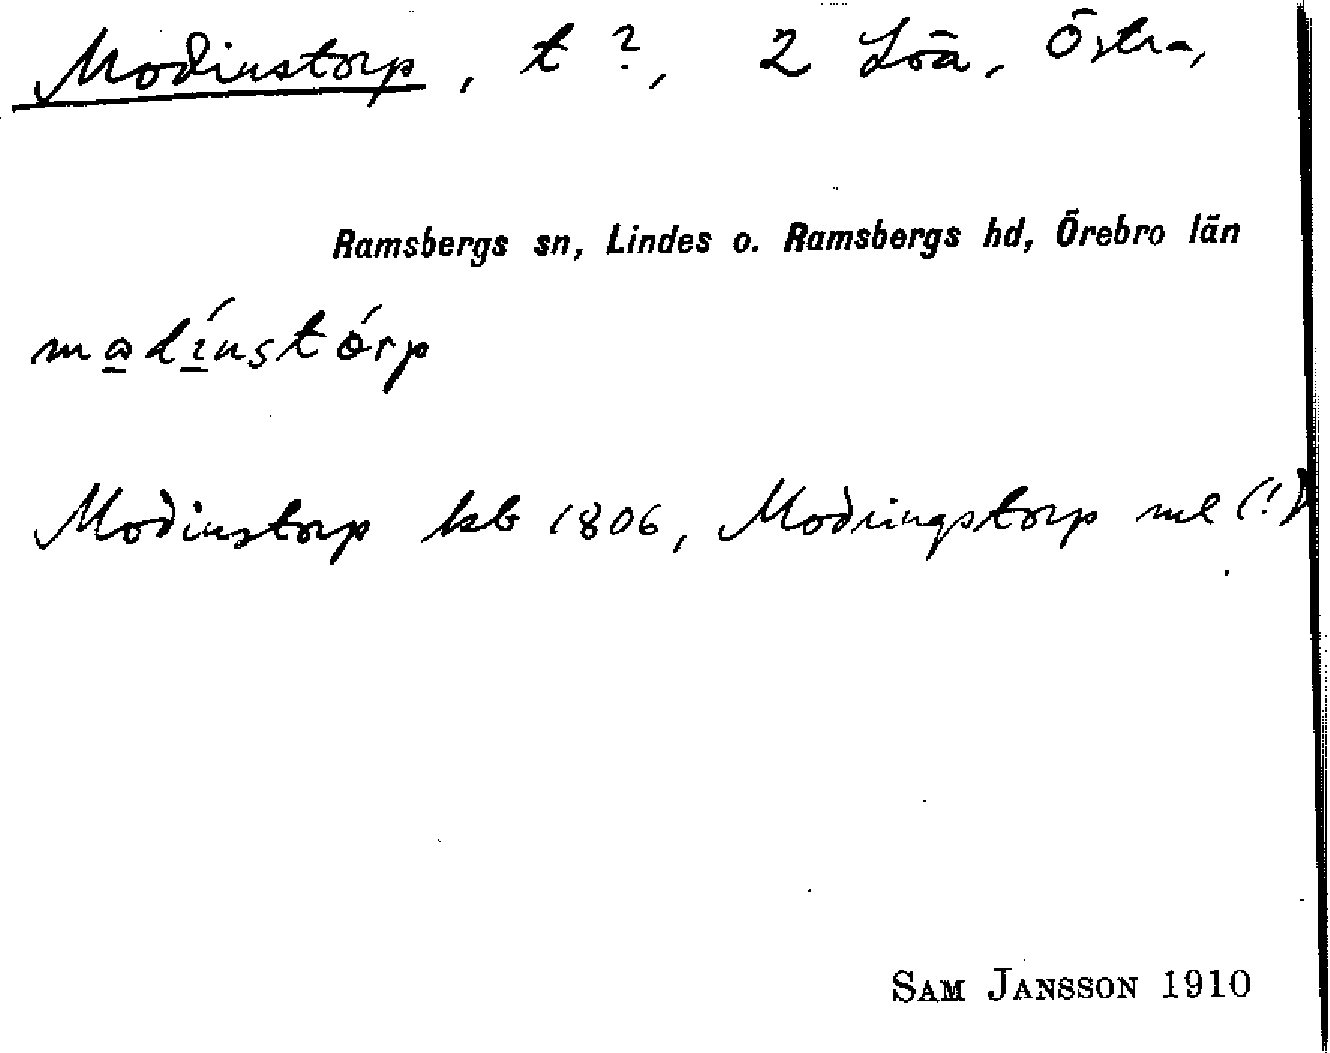 Modinstorp, t ?, 2 Löa, Östra,
Ramsbergs sn, Lindes o. Ramsbergs hd, Örebro län
madínstórp
Modinstorp kb 1806, Modringstorp ml (!)
SAM JANSSON 1910